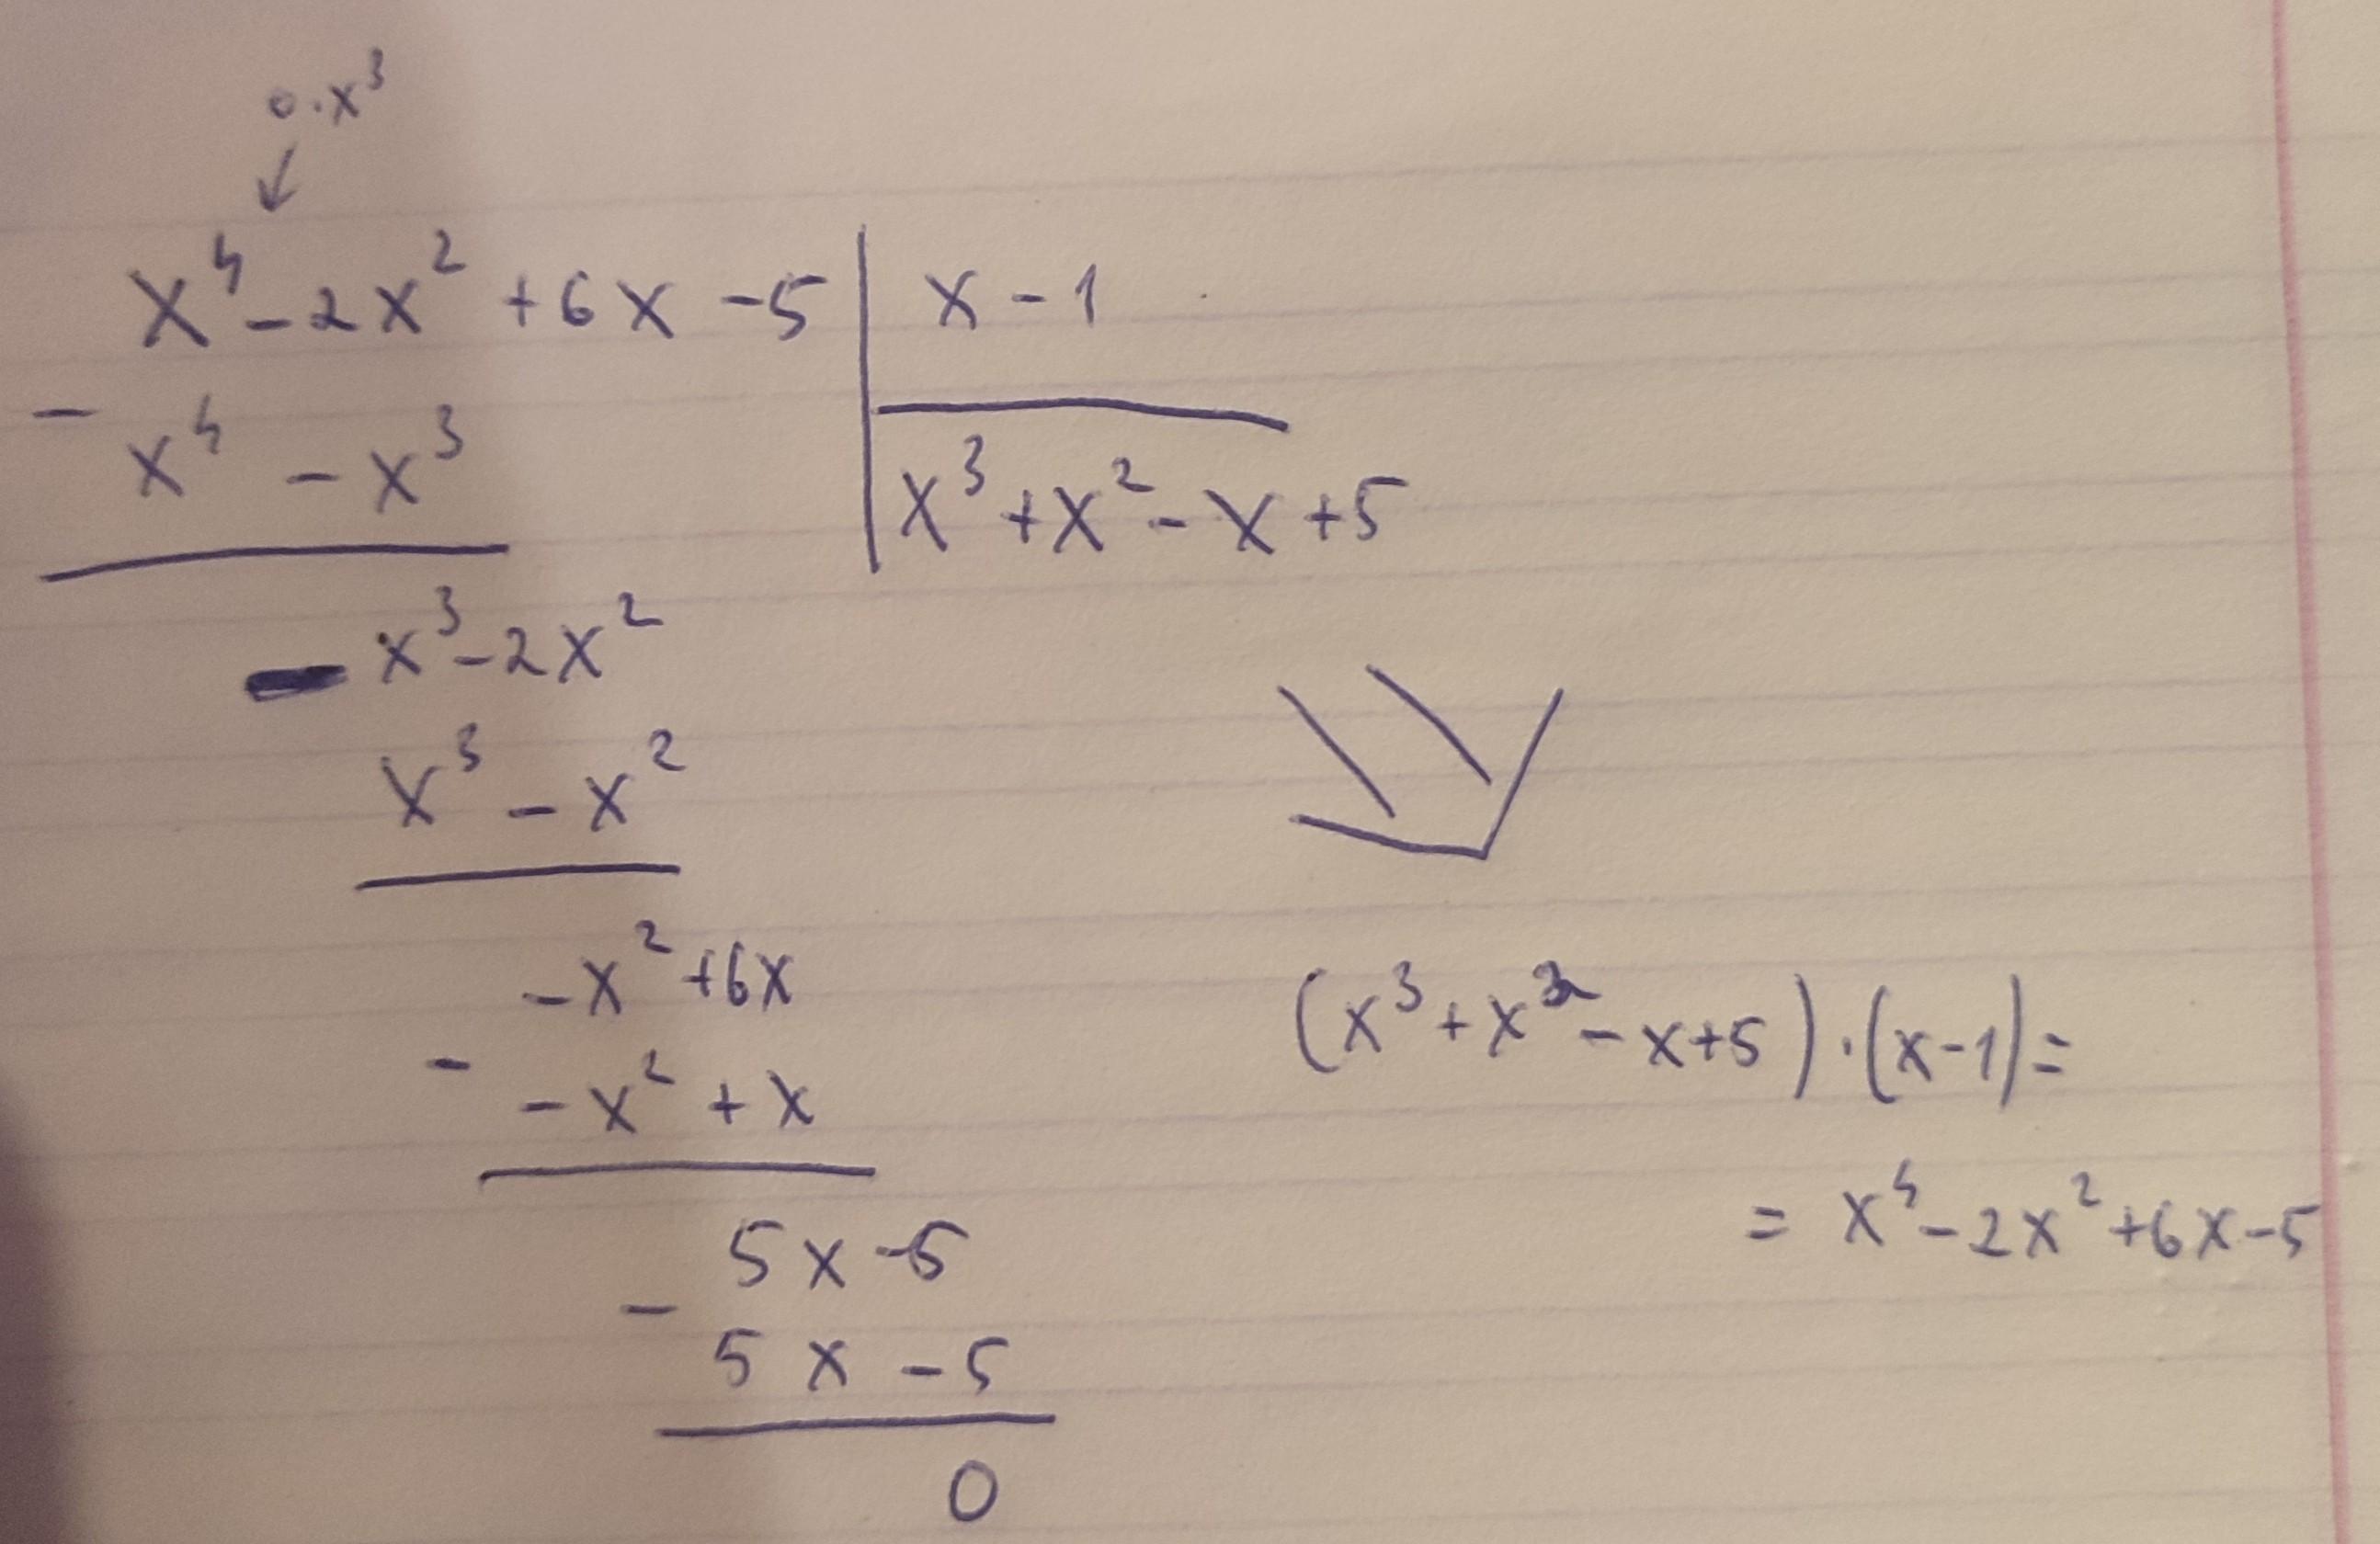 0·x³
x⁴ - 2x² + 6x - 5 | x - 1
- x⁴ - x³
x³ + x² - x + 5
- x³ - 2x²
x³ - x²
-x² + 6x
- -x² + x
5x - 5
- 5x - 5
0
(x³ + x² - x + 5) · (x - 1) =
= x⁴ - 2x² + 6x - 5